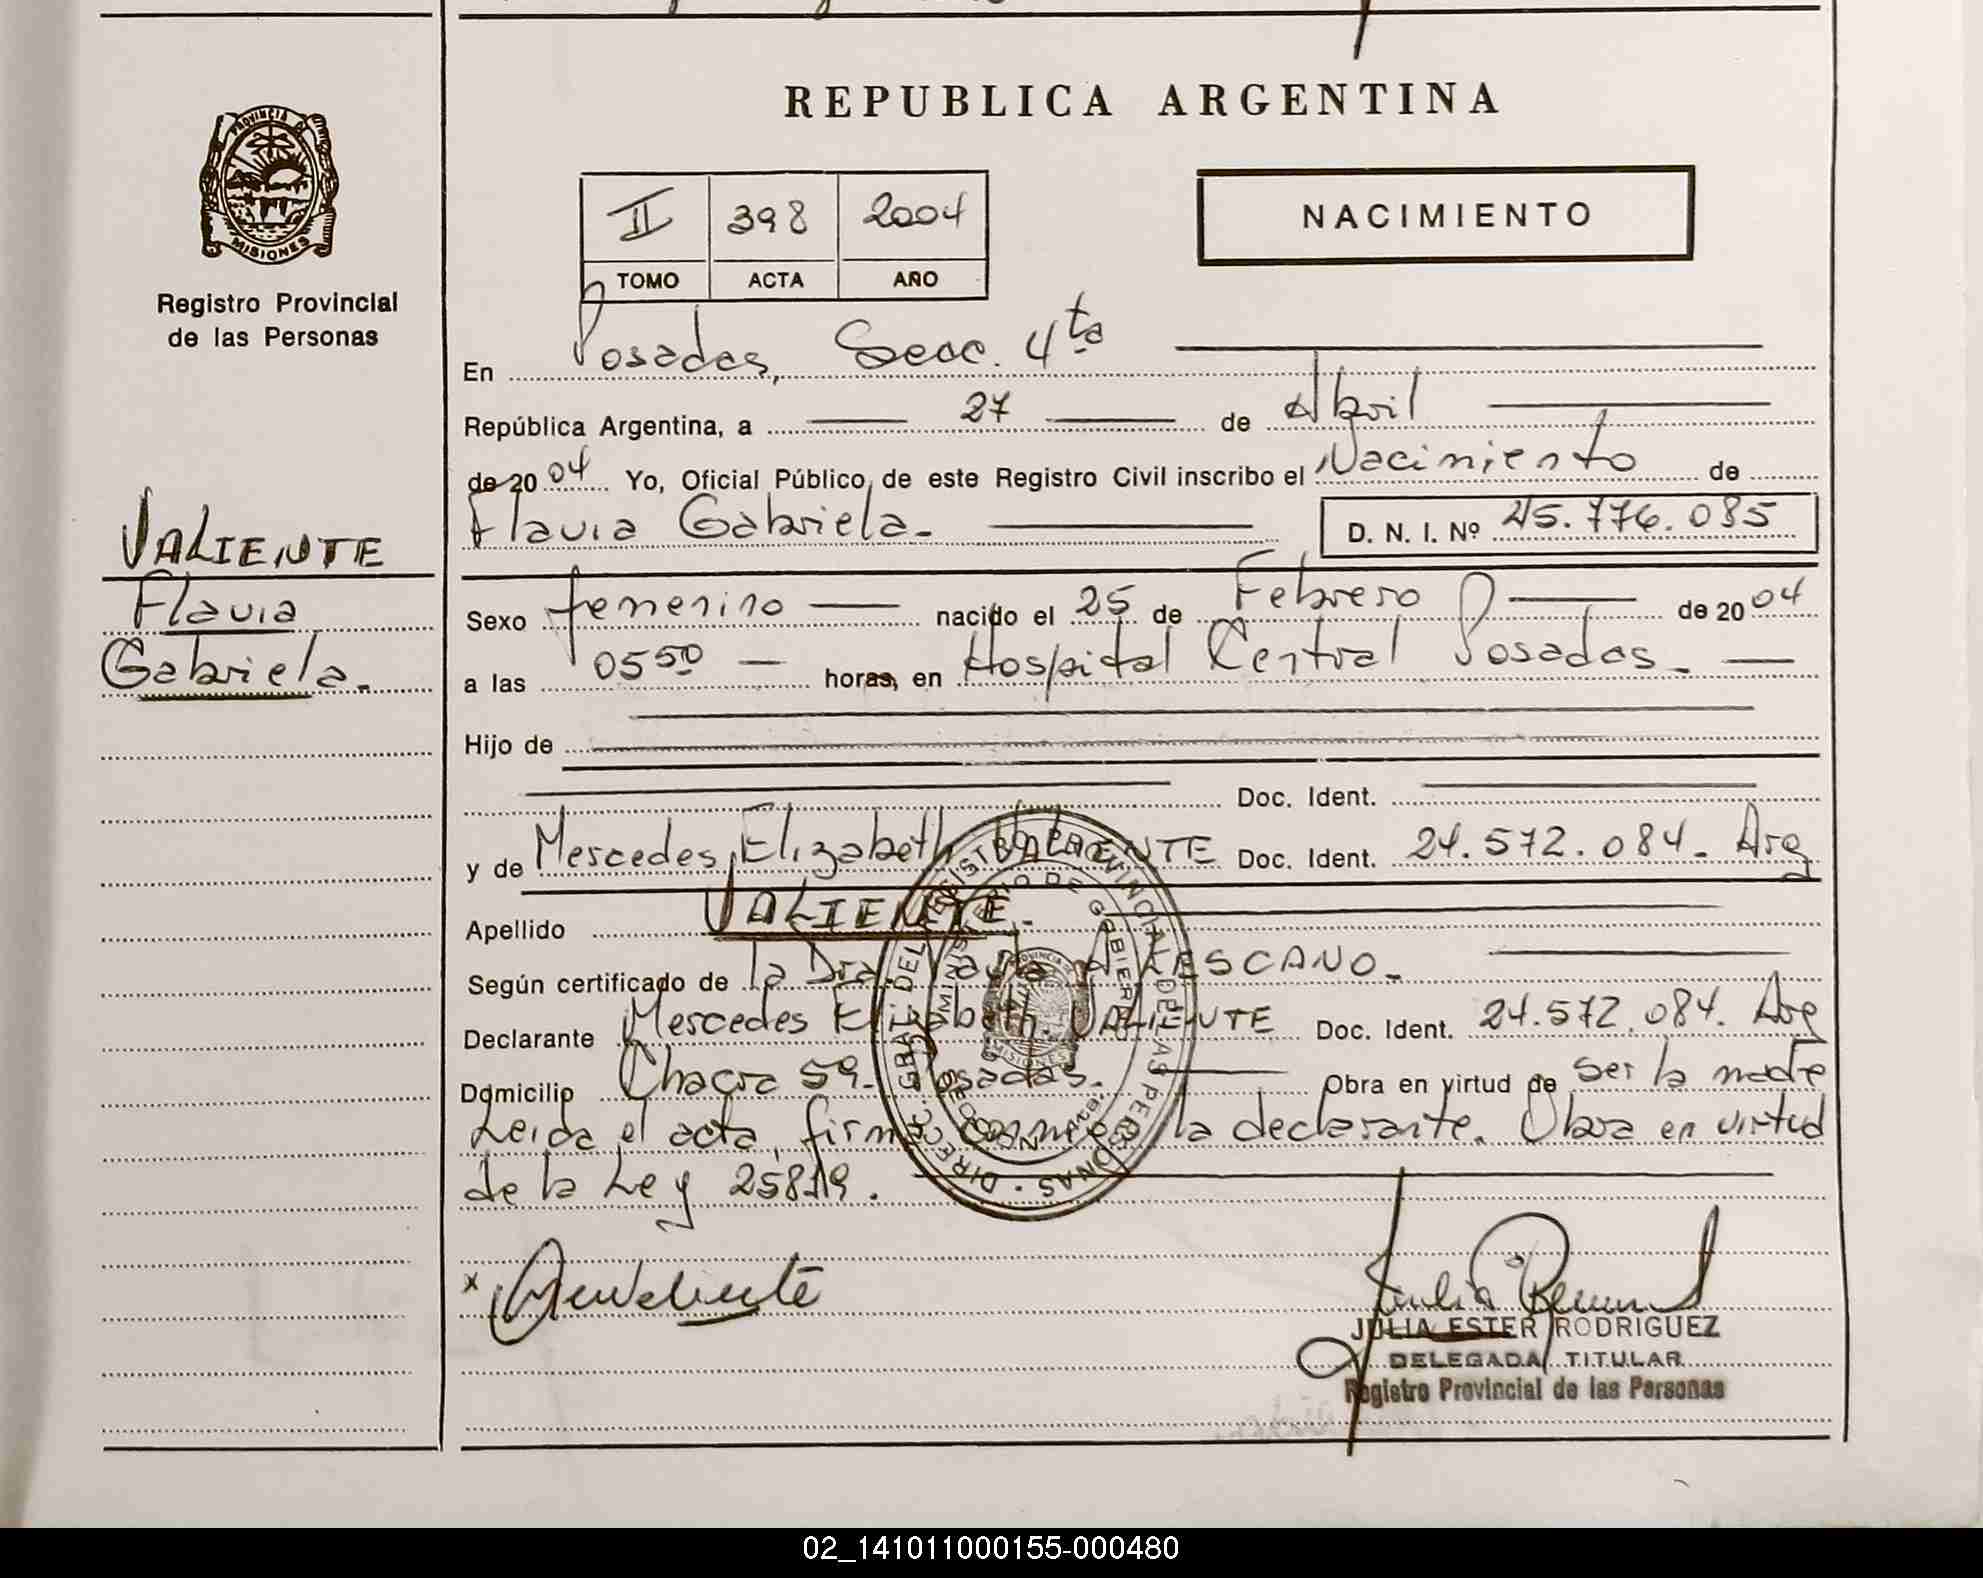 REPUBLICA ARGENTINA
PROVINCIA DE
MISIONES
Registro Provincial
de las Personas
II 398 2004
TOMO ACTA AÑO
NACIMIENTO
En Posadas, Secc. 4ta
República Argentina, a 27 de Abril
de 2004 Yo, Oficial Público, de este Registro Civil inscribo el Nacimiento de
Flavia Gabriela.
D. N. I. Nº 45.776.085
VALIENTE
Flavia
Gabriela.
Sexo femenino nacido el 25 de Febrero de 2004
a las 0550 horas, en Hospital Central Posadas.
Hijo de
Doc. Ident.
y de Mercedes Elizabeth VALIENTE Doc. Ident. 24.572.084. Arg
Apellido VALIENTE.
Según certificado de la Dra. LESCANO.
Declarante Mercedes Elizabeth VALIENTE Doc. Ident. 24.572.084. Arg
Domicilio Chacra 59. Posadas. Obra en virtud de ser la madre
Leida el acta, firma conmigo la declarante. Obra en virtud
de la Ley 25819.
JULIA ESTER RODRIGUEZ
DELEGADA TITULAR
Registro Provincial de las Personas
02_141011000155-000480